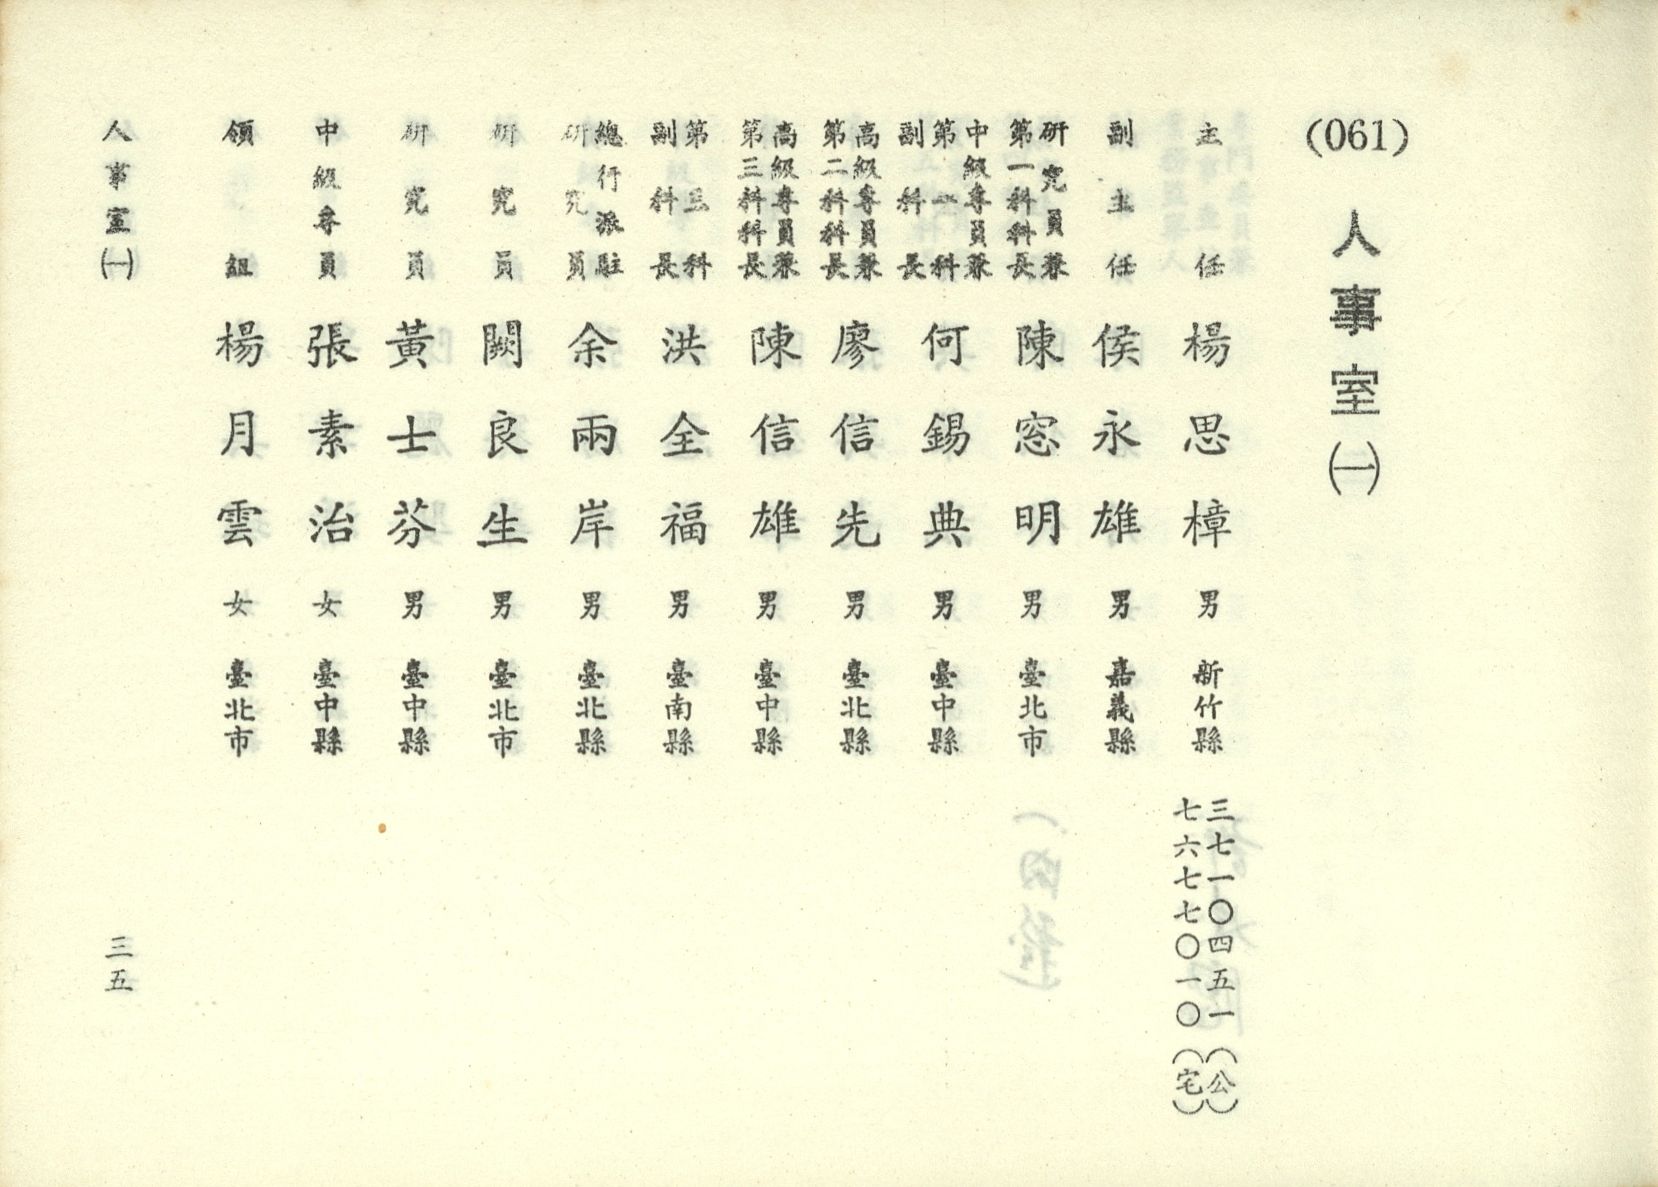 (061)
人事室㈠
主任 楊思樟 男 新竹縣 三七一〇四五一（公）
七六七七〇一〇（宅）
副主任 侯永雄 男 嘉義縣
研究員兼
第一科科長 陳窓明 男 臺北市
中級專員兼
第一科
副科長 何錫典 男 臺中縣
高級專員兼
第二科科長 廖信先 男 臺北縣
高級專員兼
第三科科長 陳信雄 男 臺中縣
第三科
副科長 洪全福 男 臺南縣
總行派駐
研究員 余兩岸 男 臺北縣
研究員 闕良生 男 臺北市
研究員 黃士芬 男 臺中縣
中級專員 張素治 女 臺中縣
領組 楊月雲 女 臺北市
人事室㈠ 三五